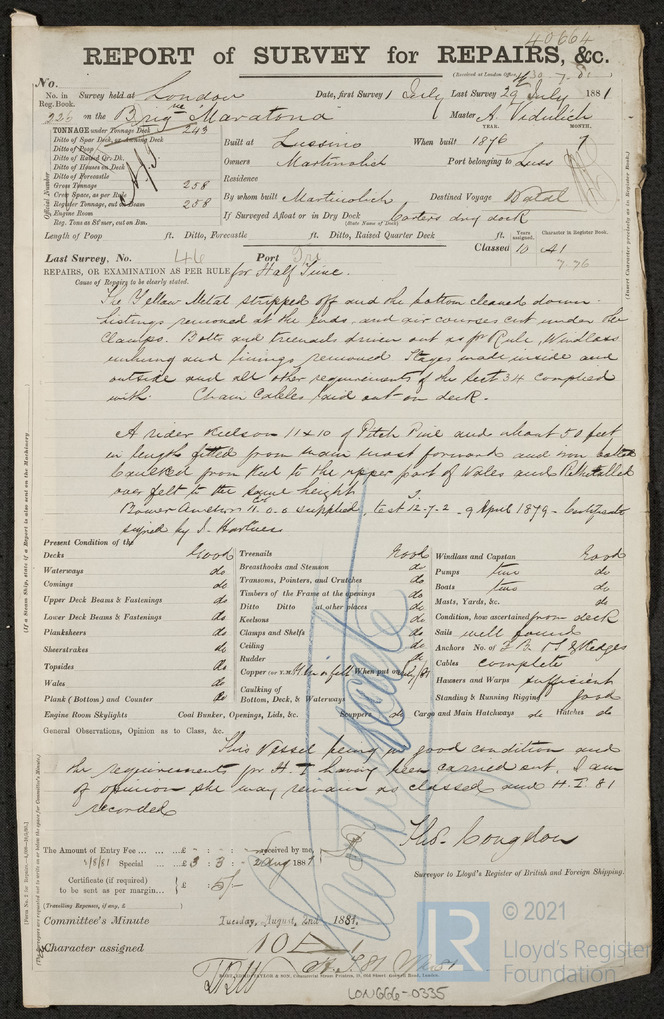 40664
REPORT of SURVEY for REPAIRS, &c.
(Received at London Office,
No.
No. in Reg. Book. Survey held at London Date, first Survey 1 July Last Survey 29 July 1881
226 on the Brigne Maratona Master A. Vidulich
TONNAGE under Tonnage Deck 243
Ditto of Spar Deck, or Awning Deck
Ditto of Poop
Ditto of Raised Qr. Dk.
Ditto of Houses on Deck
Ditto of Forecastle
Gross Tonnage 258
Gross Space, as per Rule
Register Tonnage, cut on Beam 258
Engine Room
Reg. Tons as St'mer, cut on Bm.
Official Number
YEAR. MONTH.
Built at Lussino When built 1876 7
Owners Martinolich Port belonging to Luss
Residence
By whom built Martinolich Destined Voyage Natal
If Surveyed Afloat or in Dry Dock
(State Name of Dock) dry dock
Length of Poop ft. Ditto, Forecastle ft. Ditto, Raised Quarter Deck ft.
Years assigned. Character in Register Book.
Classed 10 A1
7.76
Last Survey, No. 46 Port Tri
REPAIRS, OR EXAMINATION AS PER RULE for Half Time.
Cause of Repairs to be clearly stated.
The Yellow Metal stripped off and the bottom cleaned down.
Listings removed at the ends, and air courses cut under the
Clamps. Bolts and treenails driven out as pr Rule, Windlass
unhung and linings removed. Stages made inside and
outside and all other requirements of the Sect 34 complied
with. Chain Cables laid out on deck.
A rider keelson 11 x 10 of Pitch Pine and about 50 feet
in length fitted from main mast forward and iron bolted
Caulked from keel to the upper part of Wales and ReMetalled
over felt to the same height
Bower Anchor 11.0.0 supplied, test 12-7-2 - 9 April 1879 - Certificate
signed by J. Hartnes
Present Condition of the
Decks Good
Waterways do
Comings do
Upper Deck Beams & Fastenings do
Lower Deck Beams & Fastenings do
Planksheers do
Sheerstrakes do
Topsides do
Wales do
Plank (Bottom) and Counter do
Treenails Good
Breasthooks and Stemson do
Transoms, Pointers, and Crutches do
Timbers of the Frame at the openings do
Ditto Ditto at other places do
Keelsons do
Clamps and Shelfs do
Ceiling do
Rudder do
Copper (or Y.M.) When put on
Caulking of Bottom, Deck, & Waterways
Windlass and Capstan Good
Pumps two do
Boats two do
Masts, Yards, &c. do
Condition, how ascertained from deck
Sails well found
Anchors No. of 3 B. 1 S & Kedges
Cables complete
Hawsers and Warps sufficient
Standing & Running Rigging good
Engine Room Skylights Coal Bunker, Openings, Lids, &c. Scuppers do Cargo and Main Hatchways do Hatches do
General Observations, Opinion as to Class, &c.
This Vessel being in good condition and
the requirements for H.T having been carried out, I am
of opinion she may remain as classed and H.T. 81
recorded
Thos. Congdon
Surveyor to Lloyd's Register of British and Foreign Shipping.
The Amount of Entry Fee ... £ - : - : - received by me,
5/8/81 Special ... £ 3 : 3 : - 2 Aug 1881
Certificate (if required) to be sent as per margin... £ : 5/-
(Travelling Expenses, if any, £
Committee's Minute Tuesday, August, 2nd 1881.
Character assigned 10 A 1
LON666-0335
© 2021
LR
Lloyd's Register
Foundation